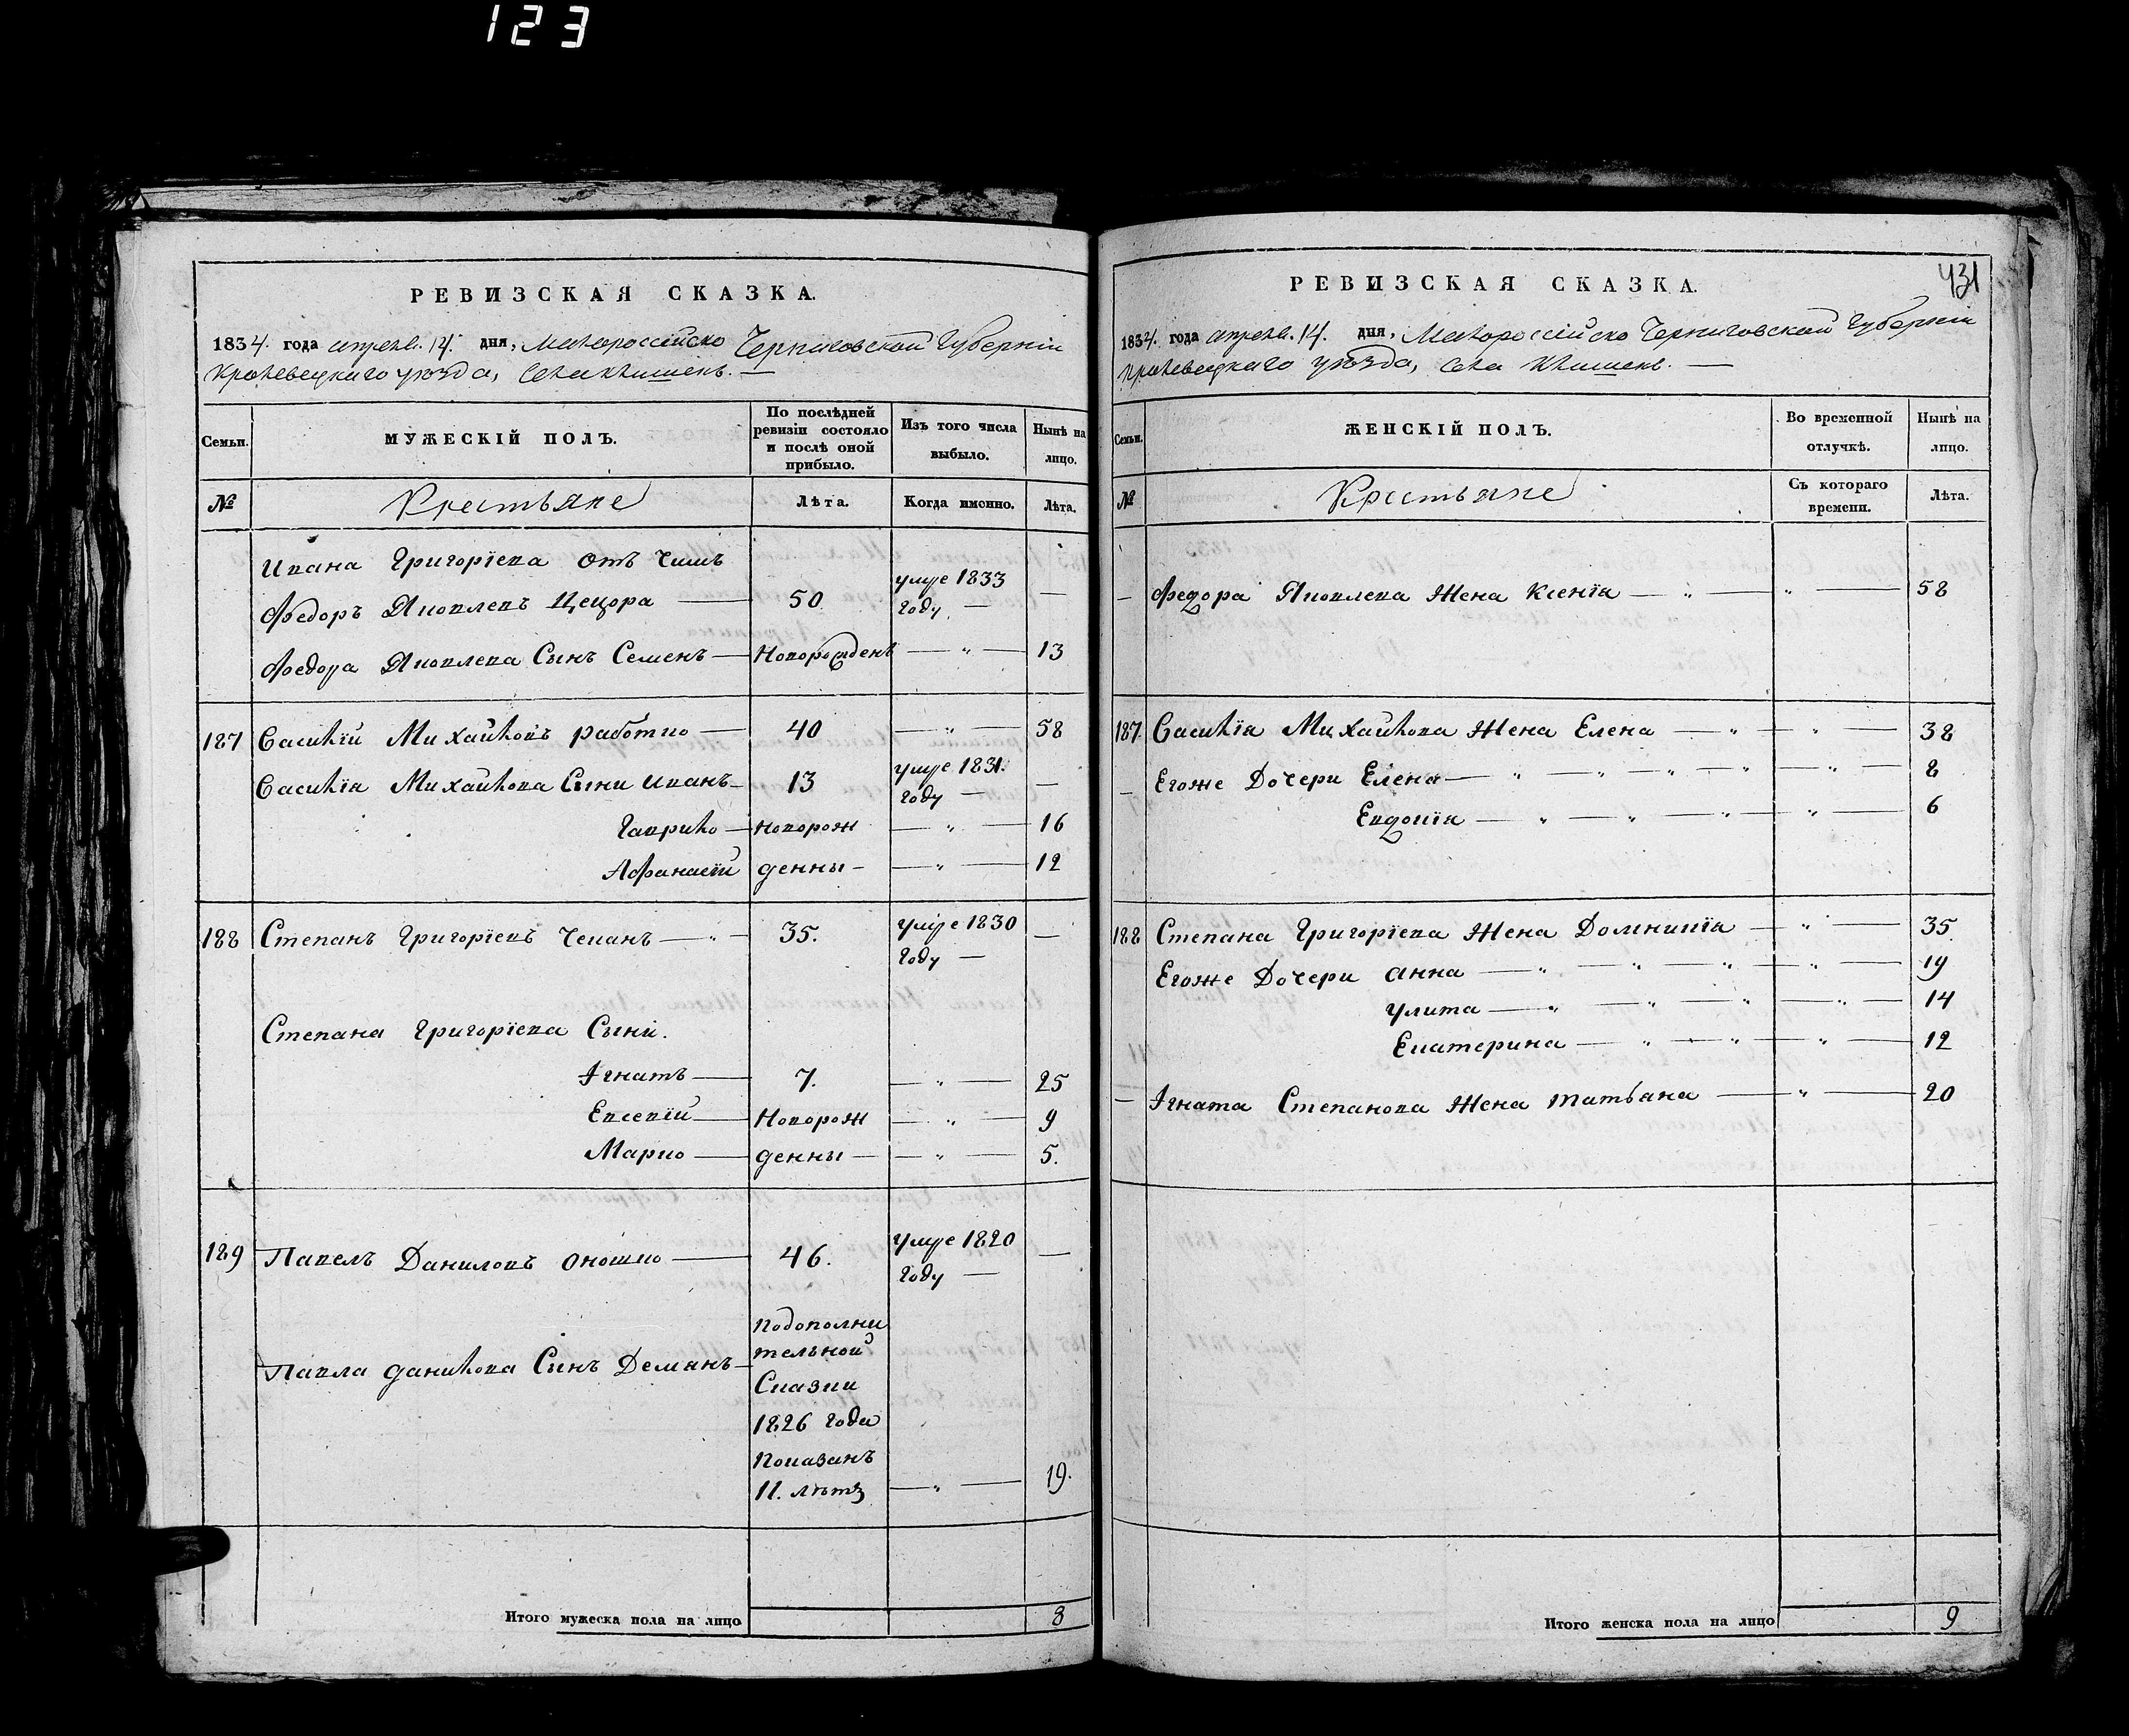 123
РЕВИЗСКАЯ СКАЗКА.
1834. года апрѣл. 14. дня, Малороссійско Черниговской Губерніи
Кролевецкаго уѣзда, села Клишекъ. —
Семьи.
МУЖЕСКІЙ ПОЛЪ.
По послѣдней ревизіи состояло и послѣ оной прибыло.
Изъ того числа выбыло.
Нынѣ на лицо.
№
Крестьяне
Лѣта.
Когда именно.
Лѣта.
Ивана Григоріева отъ чимъ
Федоръ Яковлевъ Цецора — 50. умре 1833 году — —
Федора Яковлева Сынъ Семенъ — Новорожденъ — " — 13
187 Василій Михайловъ работко — 40 — " — 58
Василія Михайлова Сыни Иванъ — 13 умре 1831. году — —
Гаврило — новорож — " — 16
Афанасій денны — — " — 12
188 Степанъ Григоріевъ Чепанъ — " — 35. умре 1830 году — —
Степана Григоріева Сыни.
Ігнатъ — 7. — " — 25
Евсевій — Новорож — " — 9
Марко — денны — — " — 5.
189 Павелъ Даниловъ Оношко — 46. умре 1820 году — —
Павла Данилова Сынъ Демянъ —
Подополни
тельной
Сказки
1826 года
Показанъ
11. лѣтъ — " — 19.
Итого мужеска пола на лицо 8
431
РЕВИЗСКАЯ СКАЗКА.
1834. года апрѣл. 14. дня, Малороссійско Черниговской Губерніи
Кролевецкаго уѣзда, села Клишекъ. —
Семьи.
ЖЕНСКІЙ ПОЛЪ.
Во временной отлучкѣ.
Нынѣ на лицо.
№
Крестьяне
Съ котораго времени.
Лѣта.
— Федора Яковлева Жена Ксенія — " — " — 58
187. Василія Михайлова Жена Елена — " — " — 38
— Егоже Дочери Елена — " — " — " — " — 8
Евдокія — " — " — " — " — 6
188 Степана Григоріева Жена Домникія — " — 35.
Егоже Дочери Анна — " — " — " — " — 19
Улита — " — " — " — " — 14
Екатерина — " — " — " — 12
— Ігната Степанова Жена Татьяна — " — 20
Итого женска пола на лицо 9